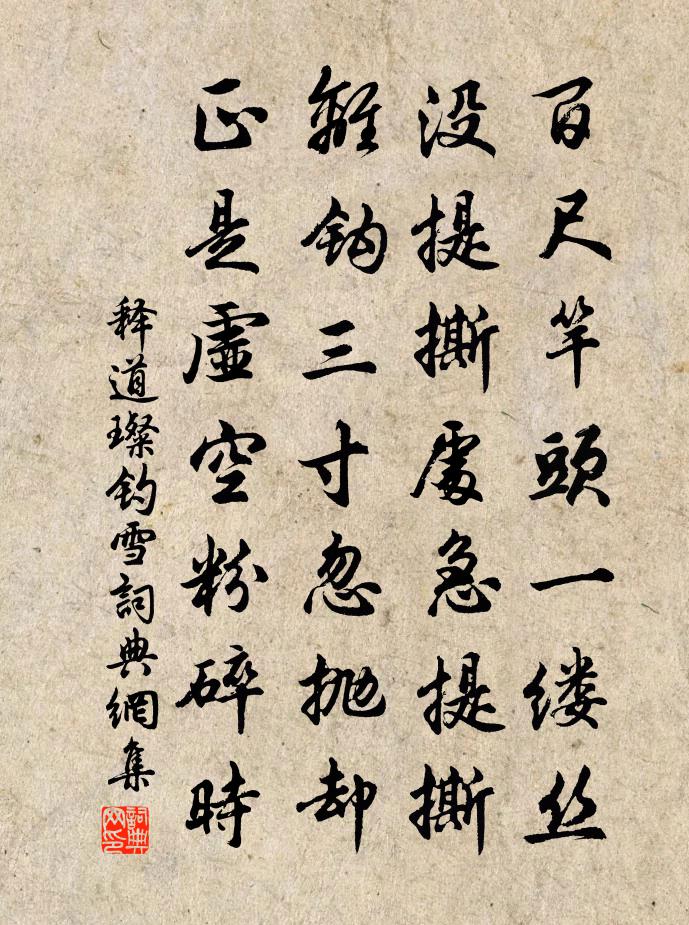 百尺竿頭一缕丝
没提撕處急提撕
離鈎三寸忽抛却
正是虛空粉碎時
释道璨钓雪詞典網集
詞典网印